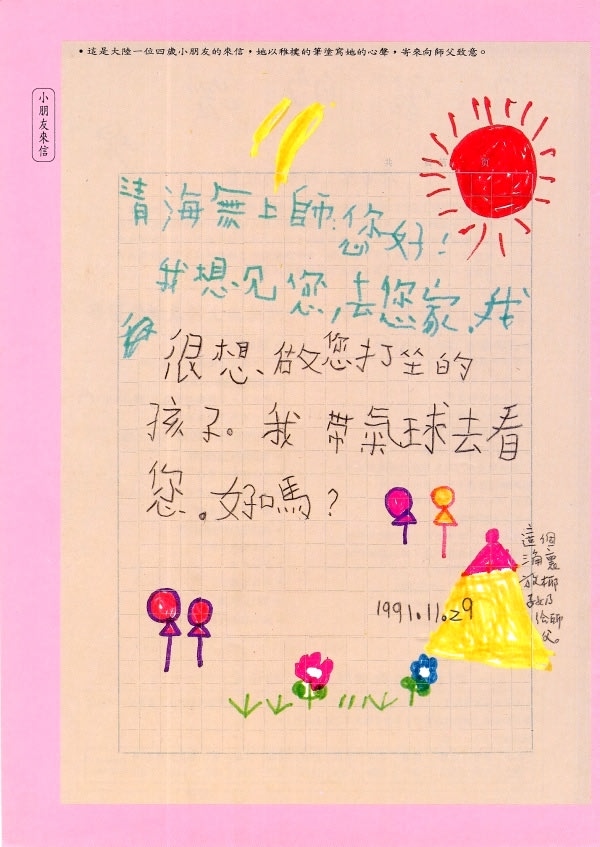 •這是大陸一位四歲小朋友的來信，她以稚樸的筆塗寫她的心聲，寄來向師父致意。
小朋友來信
清海無上師：您好！
我想见您，去您家，我
很想做您打坐的
孩子。我帶氣球去看
您。好嗎？
這個
裏
放椰
子奶
给師
父。
1991.11.29